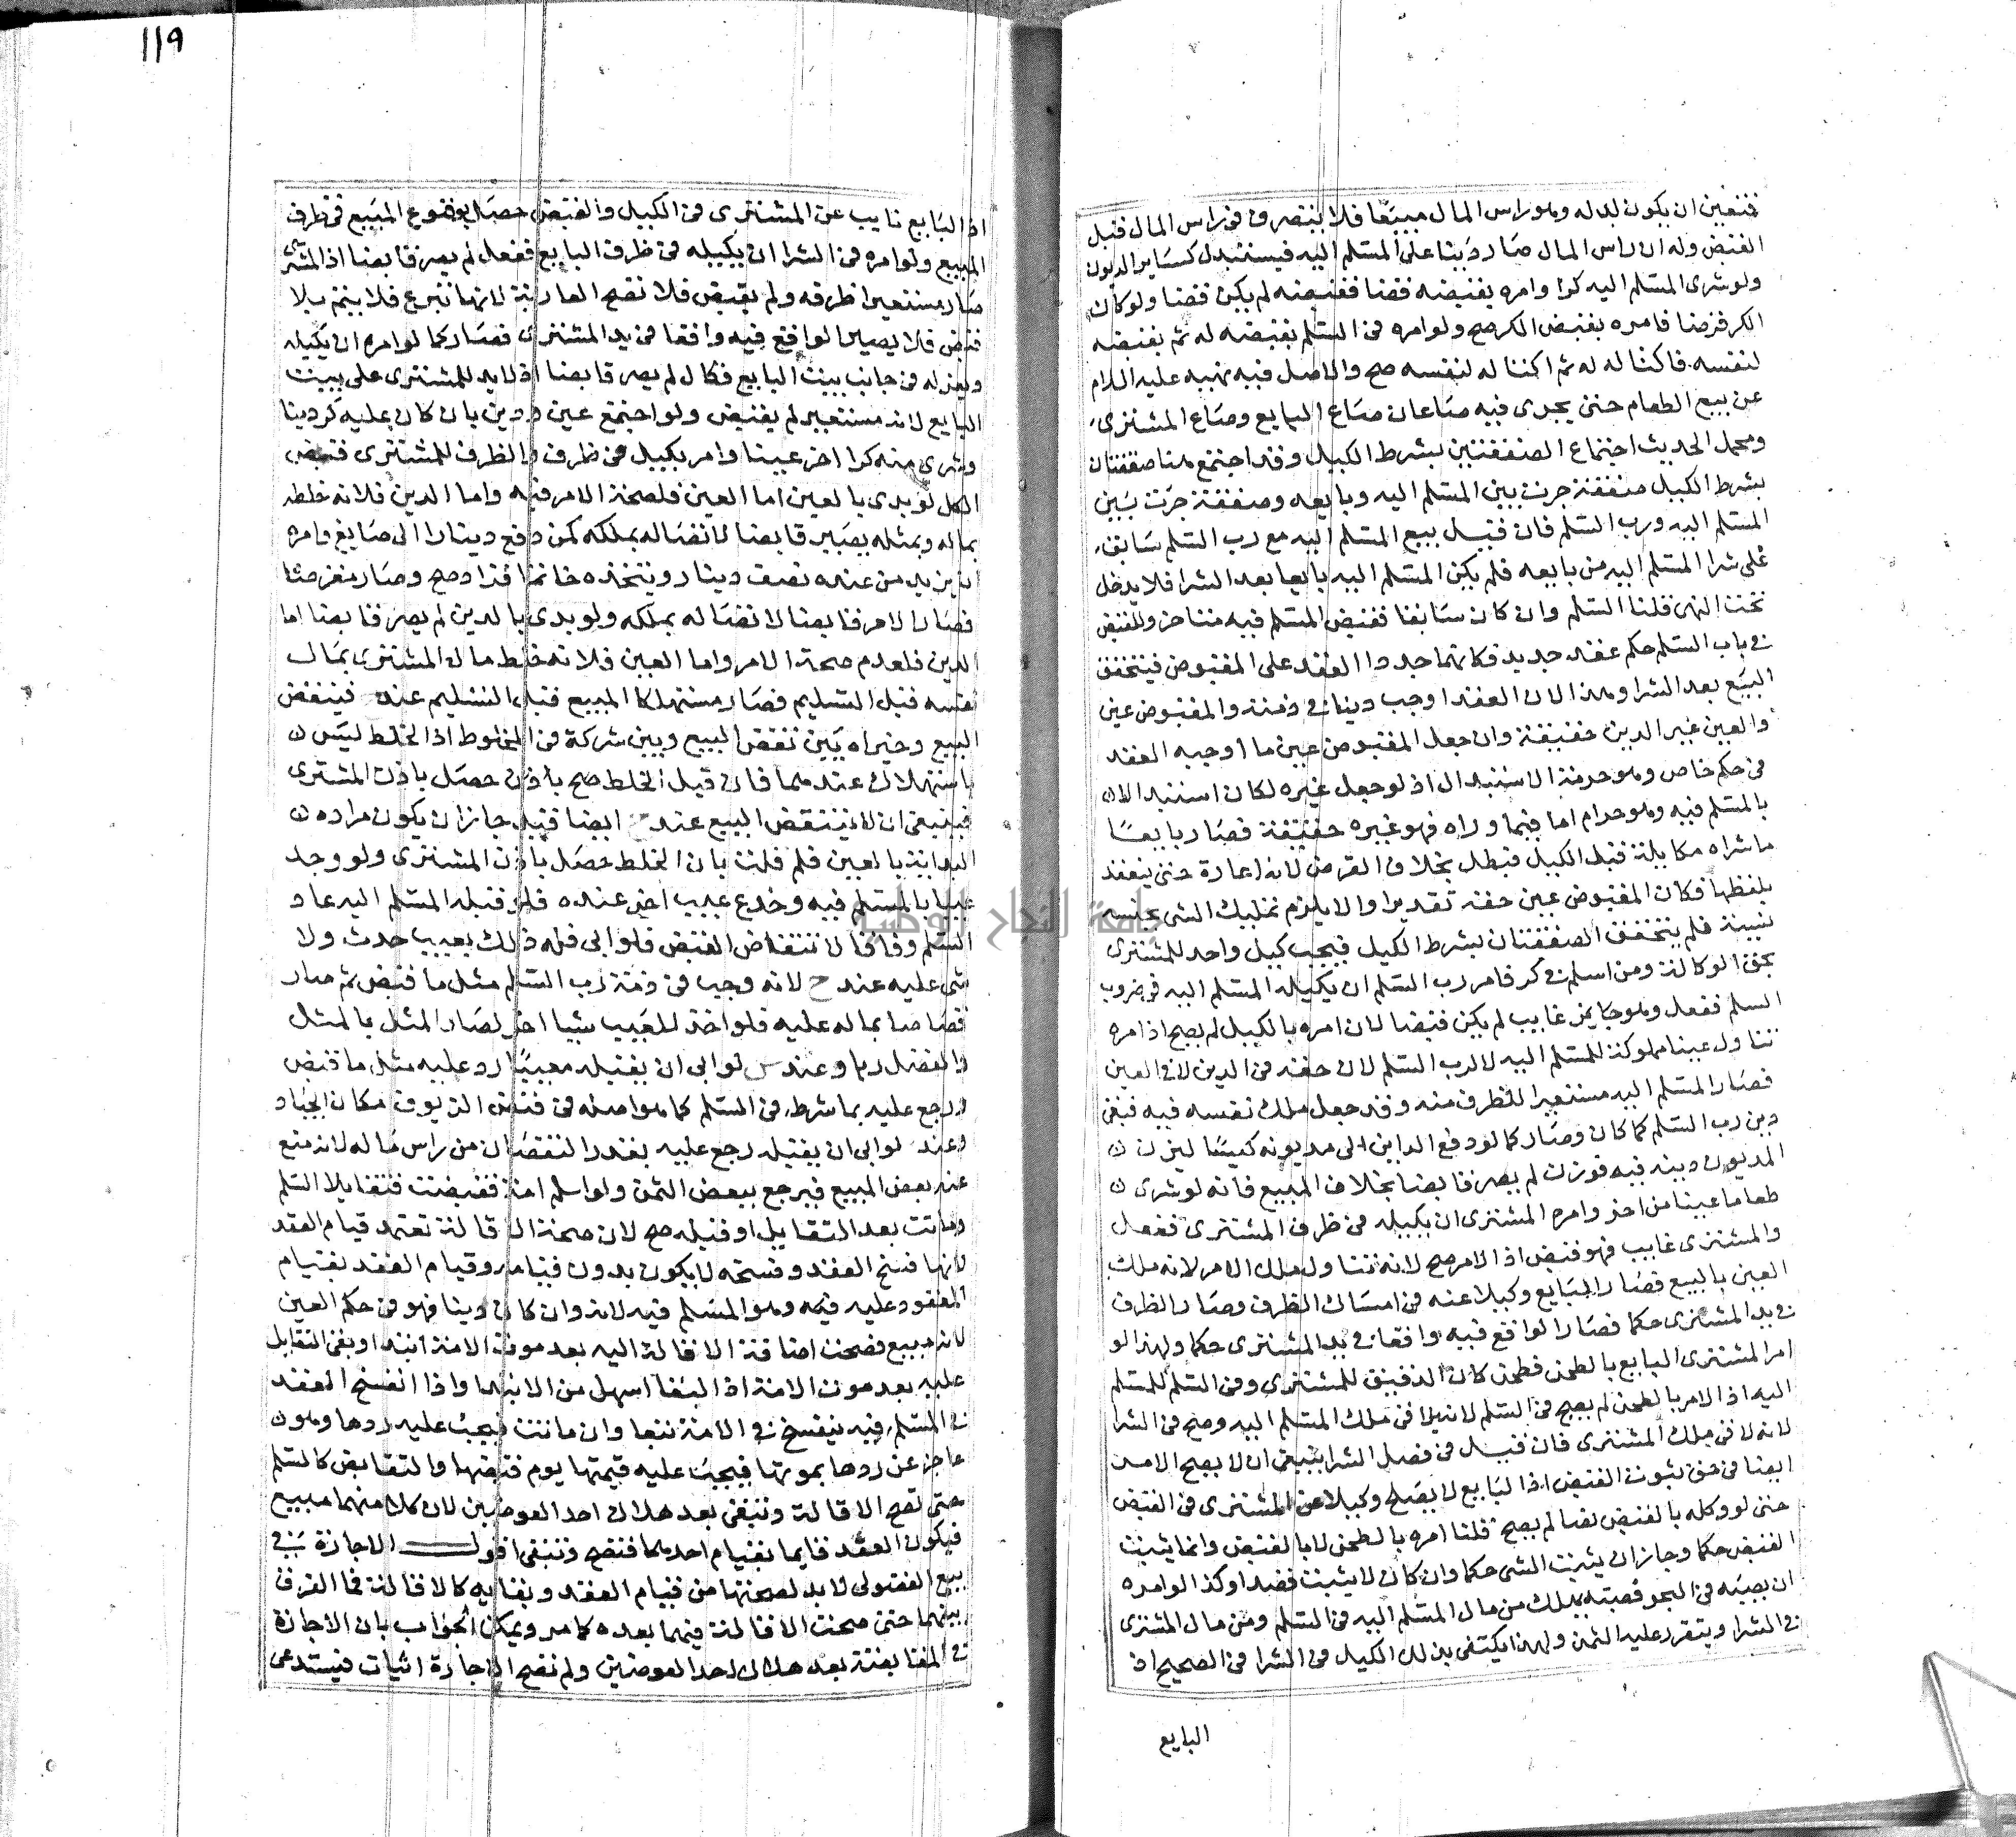 فتعين ان يكون لبدله وهو راس المال مبيعا فلا يتصرف في راس المال قبل
القبض وله ان راس المال صار دينا على المسلم اليه فيستبدل كساير الديون
ولو شرى المسلم اليه كرا وامره بقبضه قضا فقبضه لم يكن قضا ولو كان
الكر قرضا فامره بقبض الكر صح ولو امره في السلم بقبضه له ثم بقبضه
لنفسه فاكتاله له ثم اكتاله لنفسه صح والاصل فيه نهيه عليه السلام
عن بيع الطعام حتى يجرى فيه صاعان صاع البايع وصاع المشترى
ومحمل الحديث اجتماع الصفقتين بشرط الكيل وقد اجتمع هنا صفقتان
بشرط الكيل صفقة جرت بين المسلم اليه وبايعه وصفقة جرت بين
المسلم اليه ورب السلم فان قيل بيع المسلم اليه مع رب السلم سابق
على شرا المسلم اليه من بايعه فلم يكن المسلم اليه بايعا بعد الشرا فلا يدخل
تحت النهى قلنا السلم وان كان سابقا فقبض المسلم فيه متاخر والقبض
في باب السلم حكم عقد جديد فكانهما جددا العقد على المقبوض فيتحقق
البيع بعد الشرا وهذا لان العقد اوجب دينا في ذمته والمقبوض عين
والعين غير الدين حقيقة وان جعل المقبوض عين ما اوجبه العقد
في حكم خاص وهو حرمة الاستبدال اذ لو جعل غيره لكان استبدالا
بالمسلم فيه وهو حرام اما فيما وراه فهو غيره حقيقة فصار بايعا
ما شراه مكايلة قبل الكيل فبطل بخلاف القرض لانه اعارة حتى ينعقد
بلفظها فكان المقبوض عين حقه تقديرا والا يلزم تمليك الشى بجنسه
نسية فلم يتحقق الصفقتان بشرط الكيل فيجب كيل واحد للمشترى
بحق الوكالة ومن اسلم في كر فامر رب السلم ان يكيله المسلم اليه في ظروب
السلم ففعل وهو غايب لم يكن قبضا لان امره بالكيل لم يصح اذ امره
تناول عينا مملوكة للمسلم اليه لا لرب السلم لان حقه في الدين لا في العين
فصار المسلم اليه مستعيرا للظرف منه وقد جعل ملك نفسه فيه فبقى
دين رب السلم كما كان وصار كما لو دفع الداين الى مديونه كيسا ليزن
المديون دينه فيه فوزن لم يصر قابضا بخلاف المبيع فانه لو شرى
طعاما عينا من اخر وامره المشترى ان يكيله في ظرف المشترى ففعل
والمشترى غايب فهو قبض اذ الامر صح لانه تناول ملك الامر لانه ملك
العين بالبيع فصار البايع وكيلا عنه في امساك الظرف وصار الظرف
في يد المشترى حكما فصار الواقع فيه واقعا في يد المشترى حكما ولهذا لو
امر المشترى البايع بالطحن فطحن كان الدقيق للمشترى وفى السلم للمسلم
اليه اذ الامر بالطحن لم يصح في السلم لانه لاقى ملك المسلم اليه وصح في الشرا
لانه لاقى ملك المشترى فان قيل في فصل الشرا ينبغى ان لا يصح الامر
ايضا في حق ثبوت القبض اذ البايع لا يصلح وكيلا عن المشترى في القبض
حتى لو وكله بالقبض نصا لم يصح قلنا امره بالطحن لا بالقبض وانما يثبت
القبض حكما وجاز ان يثبت الشى حكما وان كان لا يثبت قصدا وكذا لو امره
ان يصبه في البحر فصبه يهلك من مال المسلم اليه في السلم ومن مال المشترى
في الشرا ويتقرر عليه الثمن ولهذا يكتفى بذلك الكيل في الشرا في الصحيح اذ
البايع
119
اذ البايع نايب عن المشترى في الكيل والقبض حصل بوقوع المبيع في ظرف
المبيع ولو امره في الشرا ان يكيله في ظرف البايع ففعل لم يصر قابضا اذ المشترى
صار مستعيرا ظرفه ولم يقبض فلا تصح العارية لانها تبرع فلا يتم بلا
قبض فلا يصير الواقع فيه واقعا في يد المشترى فصار كما لو امره ان يكيله
ويعزله في جانب بيت البايع فكال لم يصر قابضا اذ لا يد للمشترى على بيت
البايع لانه مستعير لم يقبض ولو اجتمع عين ودين بان كان عليه كر دينا
وشرى منه كرا اخر عينا وامر بكيل في ظرف والظرف للمشترى فقبض
الكل لو بدى بالعين اما العين فلصحة الامر فيه واما الدين فلانه خلطه
بماله وبمثله يصير قابضا لاتصاله بملكه كمن دفع دينارا الى صايغ وامره
ان يزيد من عنده نصف دينار ويتخذه خاتما فذا وصح وصار مقرضا
فصار الامر قابضا لاتصاله بملكه ولو بدى بالدين لم يصر قابضا اما
الدين فلعدم صحة الامر واما العين فلانه خلط مال المشترى بمال
نفسه قبل التسليم فصار مستهلكا المبيع قبل التسليم عنده فينتقض
البيع وخيراه بين نقض البيع وبين شركة في المخلوط اذ الخلط ليس
باستهلاك عندهما فان قيل الخلط صح باذن حصل باذن المشترى
فينبغى ان لا ينتقض البيع عند ح ايضا قيل جاز ان يكون مراده
البداية بالعين فلم قلت بان الخلط حصل باذن المشترى ولو وجد
عيبا بالمسلم فيه وخدع عيب اخر عنده فلو قبله المسلم اليه عاد
السلم وفاقا لانتقاض القبض فلو ابى قبله ذلك بعيب حدث ولا
شى عليه عند ح لانه وجب في ذمة رب السلم مثل ما قبض ثم صار
قصاصا بماله عليه فلو اخذ للعيب شيا اخر لصار المثل بالمثل
والفضل ربا وعند س لو ابى ان يقبله معيبا رد عليه مثل ما قبض
ورجع عليه بما شرط في السلم كما هو اصله في قبض الزيوف مكان الجياد
وعند لو ابى ان يقبله رجع عليه بقدر النقصان من راس ماله لانه منع
عنه بعض المبيع فيرجع ببعض الثمن ولو اسلم امة فقبضت فتقايلا السلم
وماتت بعد التقايل او قبله صح لان صحة الاقالة تعتمد قيام العقد
لانها فسخ العقد وفسخه لا يكون بدون قيامه وقيام العقد بقيام
المعقود عليه فيه وهو المسلم فيه لانه وان كان دينا فهو في حكم العين
لانه مبيع فصحت اضافة الاقالة اليه بعد موت الامة ابتدا وبقى التقايل
عليه بعد موت الامة اذ البقا اسهل من الابتدا واذا انفسخ العقد
في المسلم فيه ينفسخ في الامة تبعا وان ماتت فيجب عليه ردها وهو
عاجز عن ردها بموتها فيجب عليه قيمتها يوم قبضها والتقايض كالسلم
حتى تصح الاقالة وتبقى بعد هلاك احد العوضين لان كلا منهما مبيع
فيكون العقد قايما بقيام احدهما فتصح وتبقى اقول الاجازة في
بيع الفضولى لا بد لصحتها من قيام العقد وبقايه كالاقالة فما الفرق
بينهما حتى صحت الاقالة فيهما بعده كما مر ويمكن الجواب بان الاجازة
في المقايضة بعد هلاك احد العوضين ولم تصح الاجازة اثبات فيستدعى
جامعة النجاح الوطنية